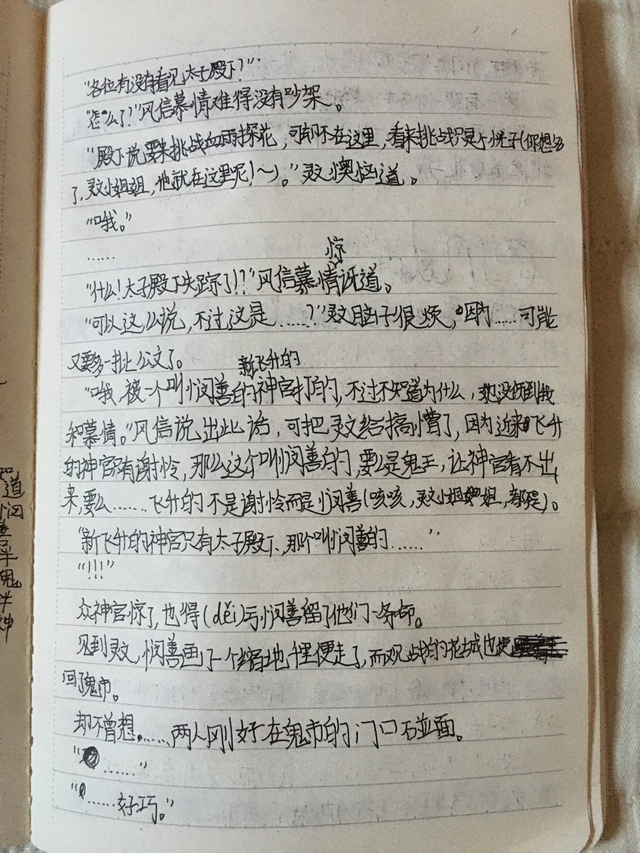 "各位有没有看见太子殿下?"
"怎么了?"风信慕情难得没有吵架。
"殿下说要来挑战血雨探花,可却不在这里,看来挑战只是个幌子(你想多
了,灵文小姐姐,他就在这里呢!~)。"灵文懊恼道。
"哦。"
……
"什么!太子殿下失踪了!?"风信慕情惊讶道。
"可以这么说,不过,这是……?"灵文脑子很烦,因为……可能
又要多一批公文了。
"哦,被一个叫悯善的新飞升的神官打的,不过不知道为什么,都没伤到我
和慕情。"风信说出此话,可把灵文给搞懵了,因为近来飞升
的神官只有谢怜,那么这个叫悯善的要么是鬼王,让神官看不出
来,要么……飞升的不是谢怜而是悯善(咳咳,灵文小姐姐,都是)。
"新飞升的神官只有太子殿下,那个叫悯善的……"
"!!!"
众神官惊了,也得(děi)亏悯善留了他们一条命。
见到灵文,悯善画了一个缩地千里便走了,而观战的花城也
回了鬼市。
却不曾想……两人刚好在鬼市的门口碰面。
"……"
"……好巧。"
道
悯
鬼
牛
神